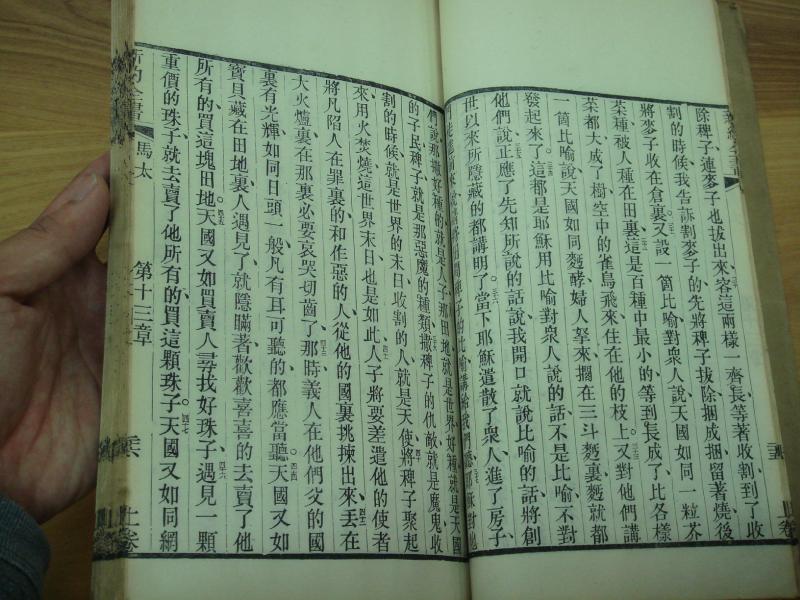 除稗子連麥子也拔出來容這兩樣一齊長等著收割到了收
割的時候我告訴割麥子的先將稗子拔除捆成捆留著燒後
將麥子收在倉裏又設一箇比喻對衆人說天國如同一粒芥
菜種被人種在田裏這是百種中最小的等到長成了比各樣
菜都大成了樹空中的雀鳥飛來住在他的枝上又對他們講
一箇比喻說天國如同麪酵婦人拏來擱在三斗麪裏麪就都
發起來了這都是耶穌用比喻對衆人說的話不是比喻不對
他們說正應了先知所說的話說我開口就說比喻的話將創
世以來所隱藏的都講明了當下耶穌遣散了衆人進了房子
們說那撒好種的就是人子那田地就是世界好種就是天國
的子民稗子就是那惡魔的種類撒稗子的仇敵就是魔鬼收
割的時候就是世界的末日收割的人就是天使將稗子聚起
來用火焚燒這世界末日也是如此人子將要差遣他的使者
將凡陷人在罪裏的和作惡的人從他的國裏挑揀出來丟在
大火爐裏在那裏必要哀哭切齒了那時義人在他們父的國
裏有光輝如同日頭一般凡有耳可聽的都應當聽天國又如
寶貝藏在田地裏人遇見了就隱瞞著歡歡喜喜的去賣了他
所有的買這塊田地天國又如買賣人尋找好珠子遇見一顆
重價的珠子就去賣了他所有的買這顆珠子天國又如同網
新約全書 馬太 第十三章 上卷